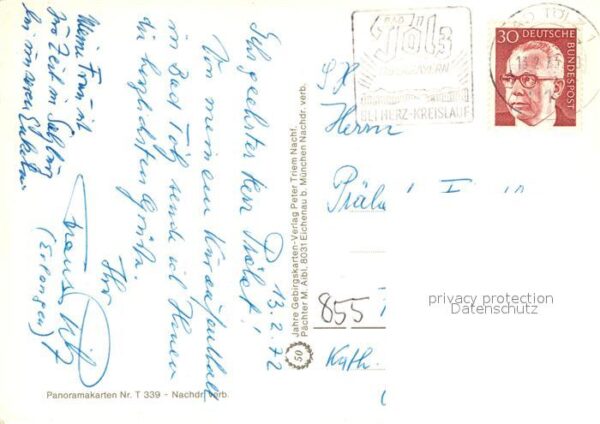 13.2.72
Sehr geehrter Herr Prälat!
Von meinem Kuraufenthalt
in Bad Tölz sende ich Ihnen
die herzlichsten Grüße
Ihr
(Erlangen)
Meine Frau ist
zur Zeit in Salzburg
bei unseren Enkeln.
Jahre Gebirgskarten-Verlag Peter Triem Nachf.
Pächter M. Aibl, 8031 Eichenau b. München Nachdr. verb.
50
Panoramakarten Nr. T 339 - Nachdr. verb.
BAD
Tölz
OBERBAYERN
BEI HERZ-KREISLAUF
BAD TÖLZ 1
30 DEUTSCHE
BUNDESPOST
Herrn
855
Kath.
privacy protection
Datenschutz